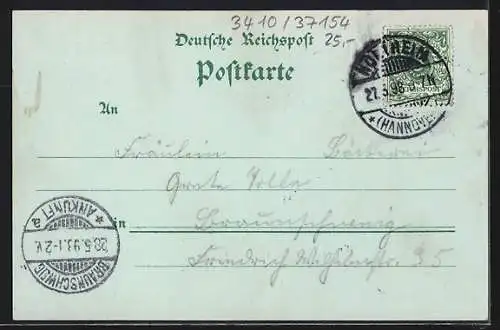 3410/37154
Deutsche Reichspost
25,-
Postkarte
NORTHEIM
27.5.98. 7N
*(HANNOVER
REICHSPOST
An
Fräulein
Grete
in Braunschweig
Friedrich Wilhelmstr. 35
* ANKUNFT a
28.5.98.1-2V.
BRAUNSCHWEIG